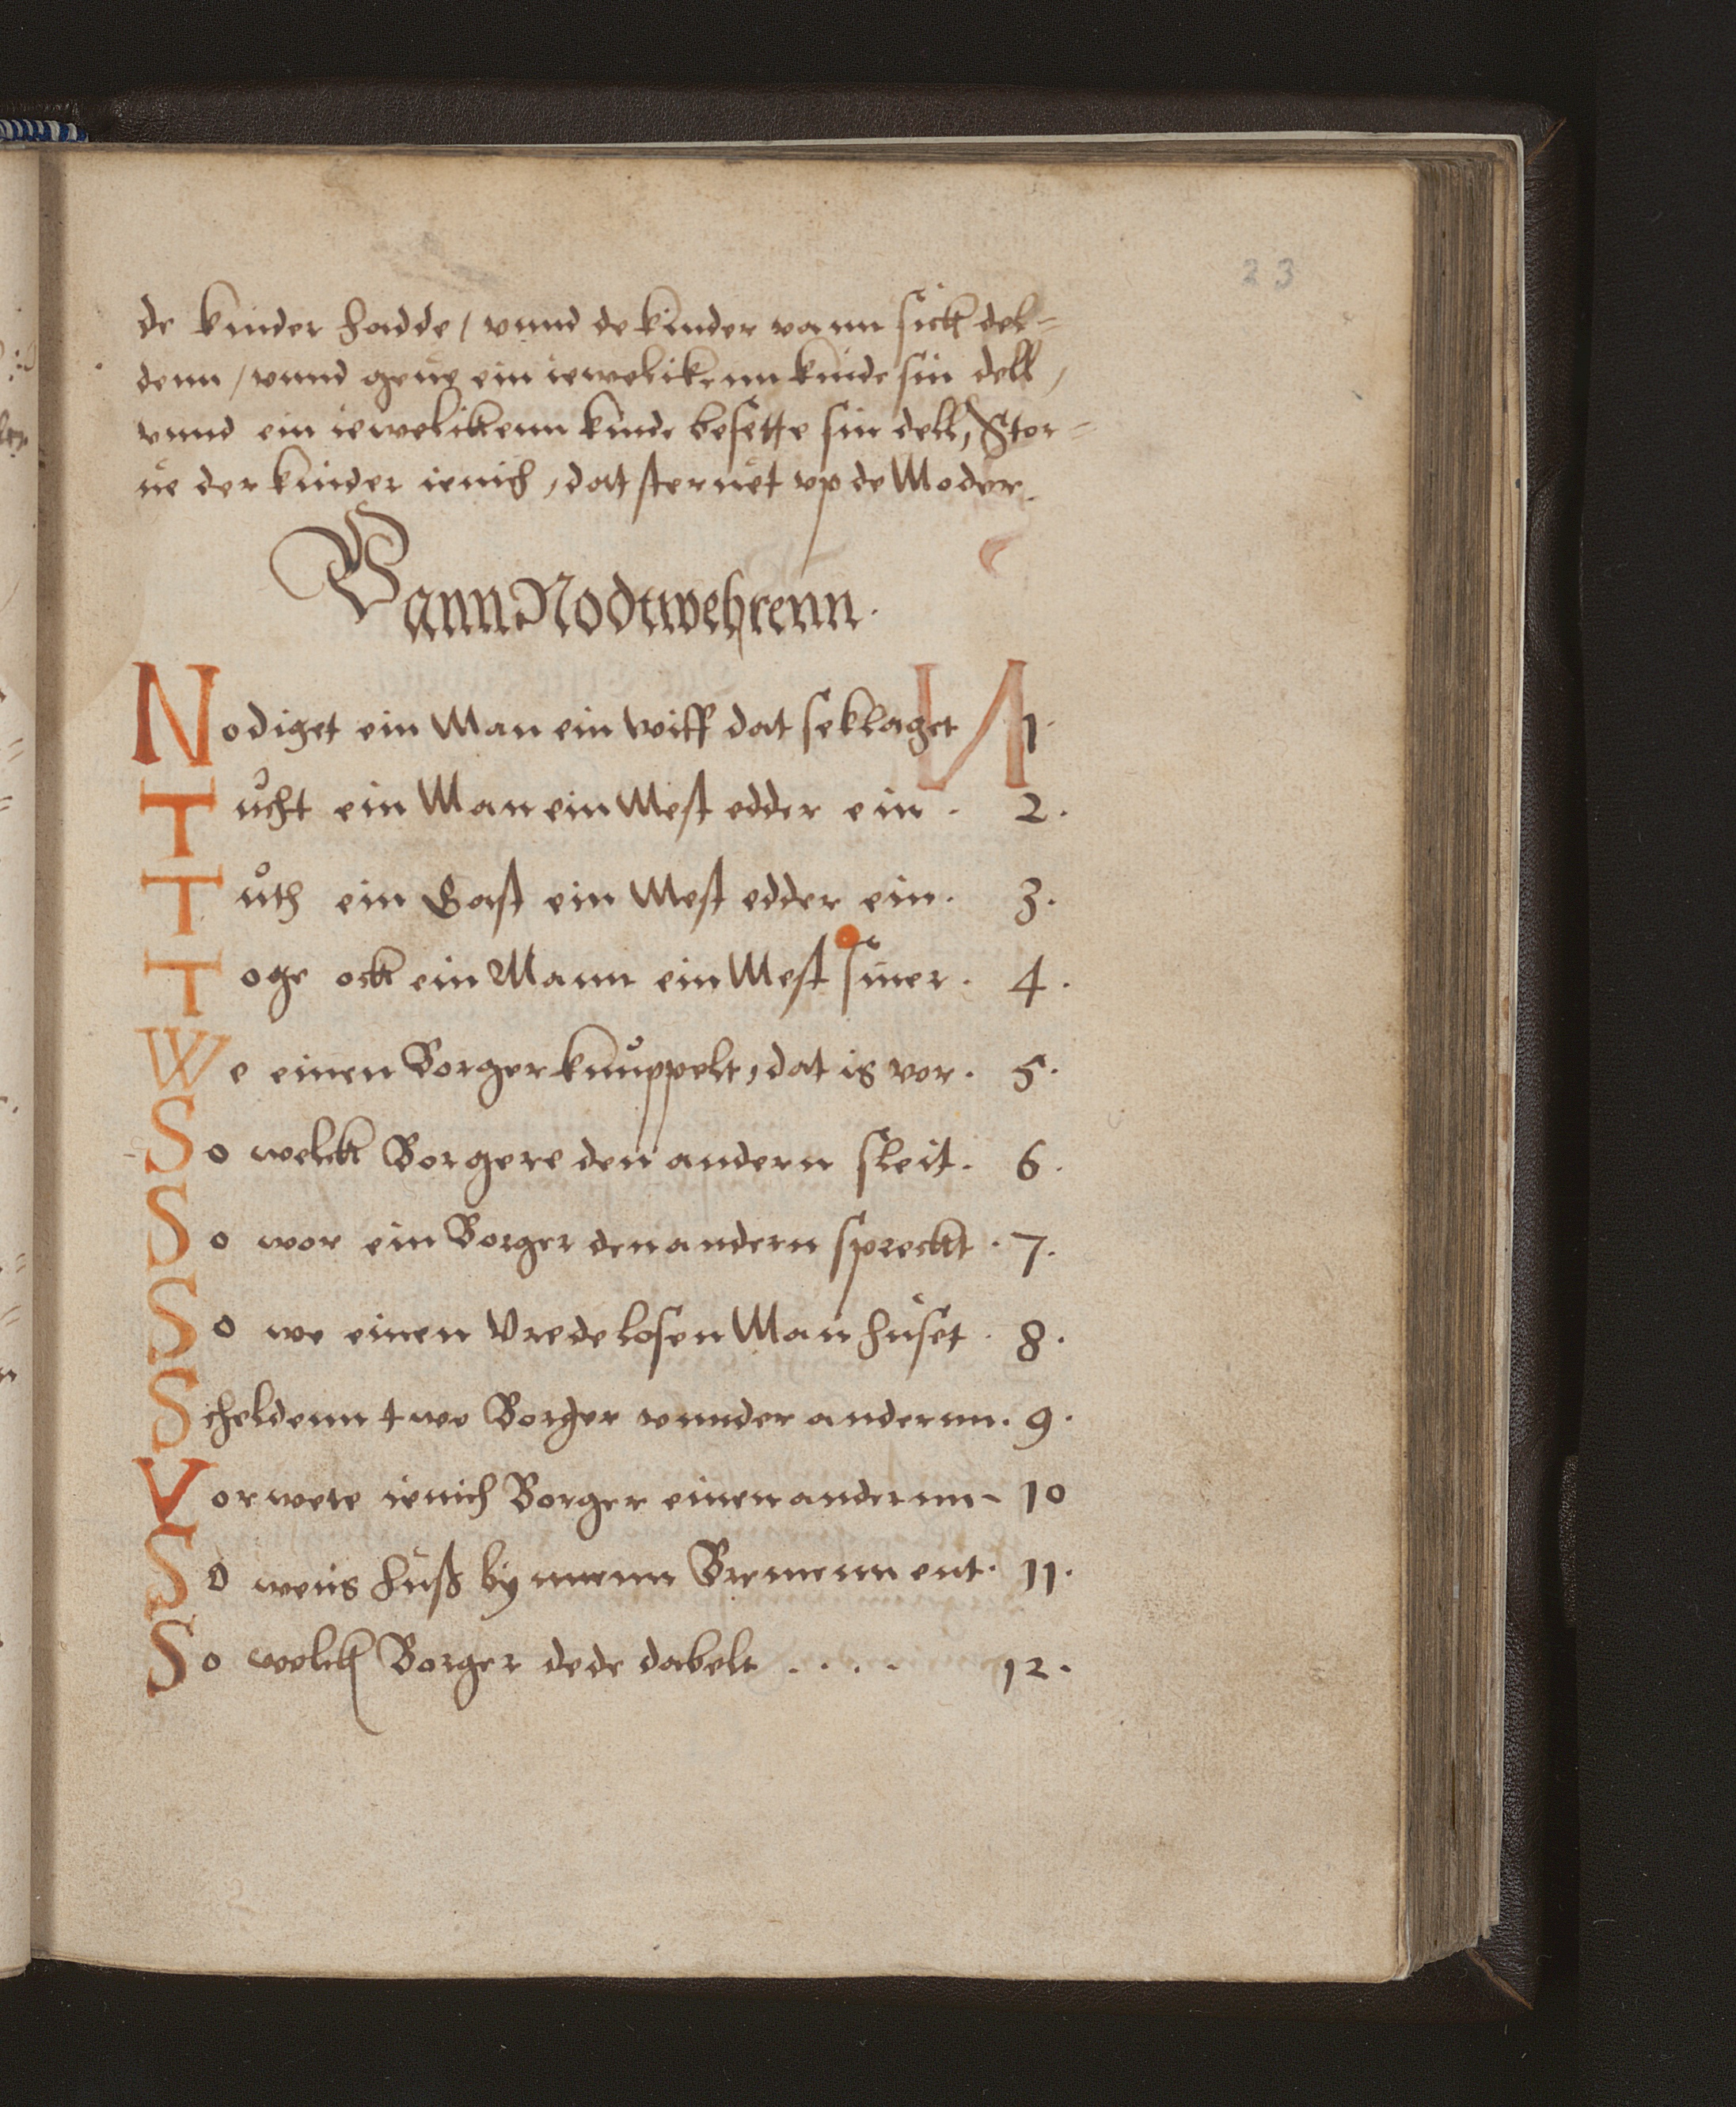 23
de kinder hadde / vnnd de kinder vann sick del=
denn / vnnd geue ein iewelikenn kinde sin dell /
vnnd ein iewelickenn kinde besette sin dell, Stor=
ue der kinder ienich, dat steruet vp de Moder.
Vann Nodtwehrenn.
Nodiget ein Man ein wiff dat se klaget 1.
Tucht ein Man ein Mest edder ein. 2.
Tuth ein Gast ein Mest edder ein. 3.
Toge ock ein Mann ein Mest siner. 4.
We einen Borger knuppelt, dat is vor. 5.
So welck Borgere den andern sleit. 6.
So wor ein Borger den andern spreckt. 7.
So we einen Vredelosen Man huset. 8.
Scheldenn twe Borger vnnder andernn. 9.
Vorwete ienich Borger einen andernn- 10
So weus huß bynnenn Bremenn ent. 11.
So welck Borger dede dabelt .... 12.